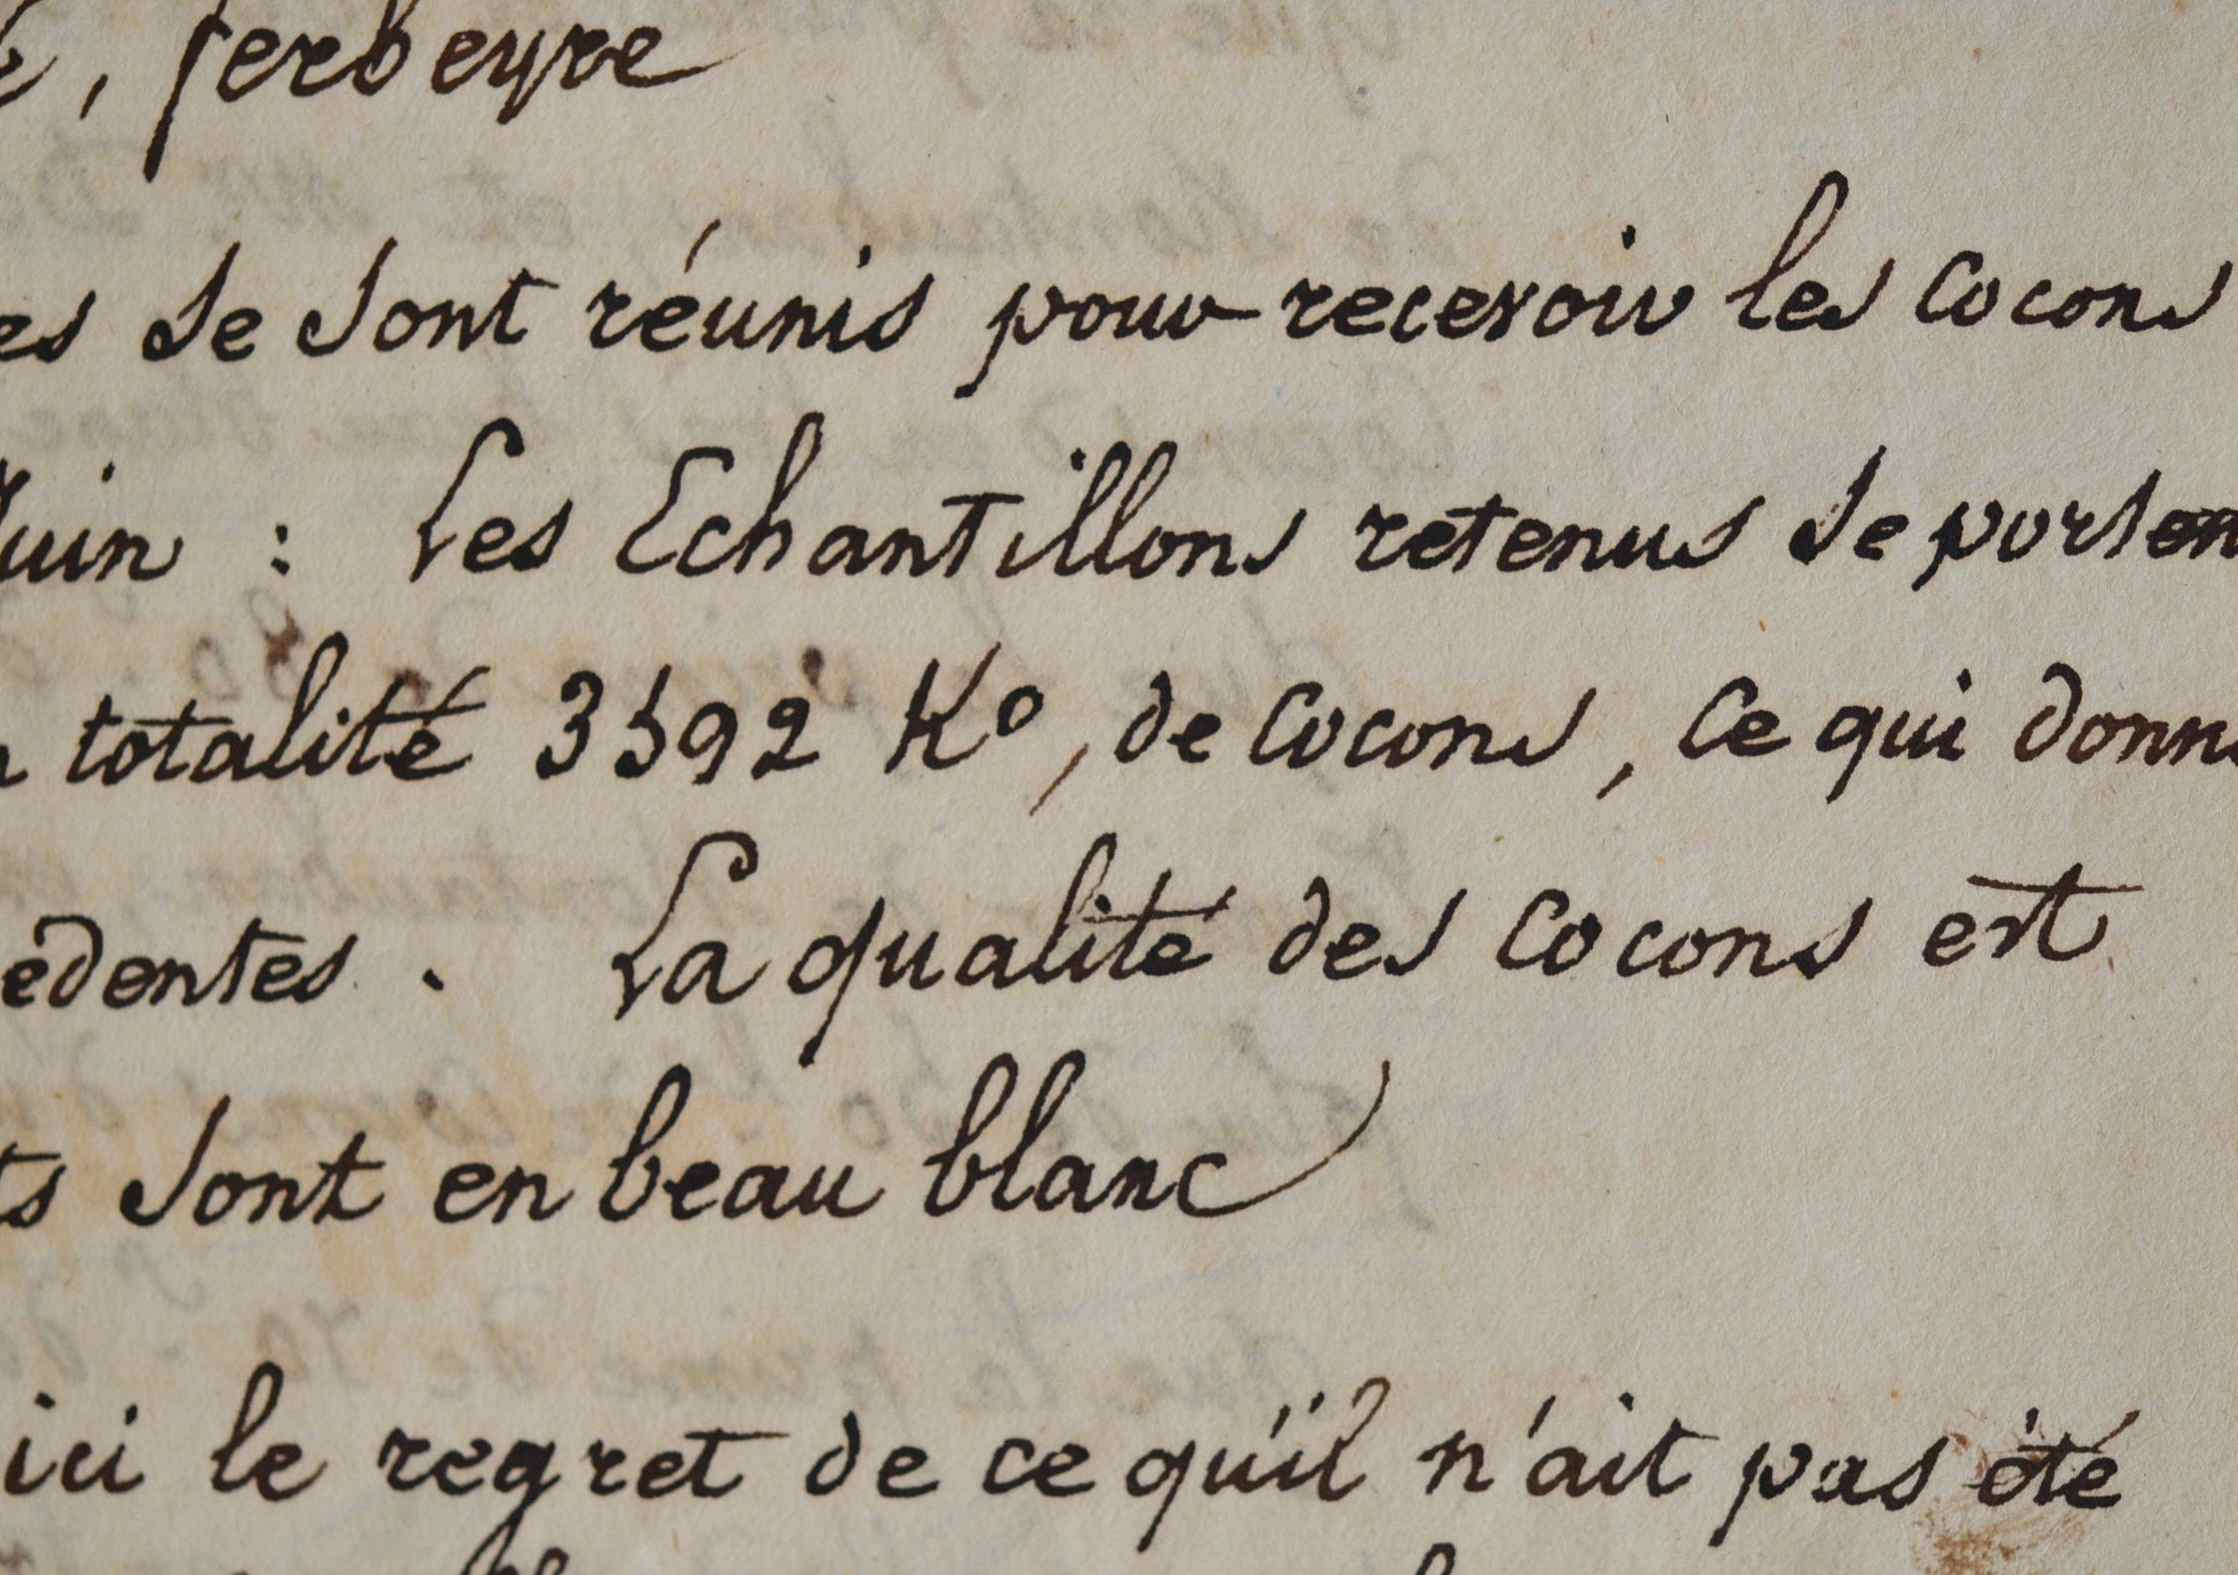 , Serbeyre
es se sont réunis pour recevoir les cocons
Juin : Les Echantillons retenus se porten
totalité 3592 Ko, de cocons, ce qui donn
édentes. La qualité des cocons est
ts sont en beau blanc
ici le regret de ce qu'il n'ait pas été